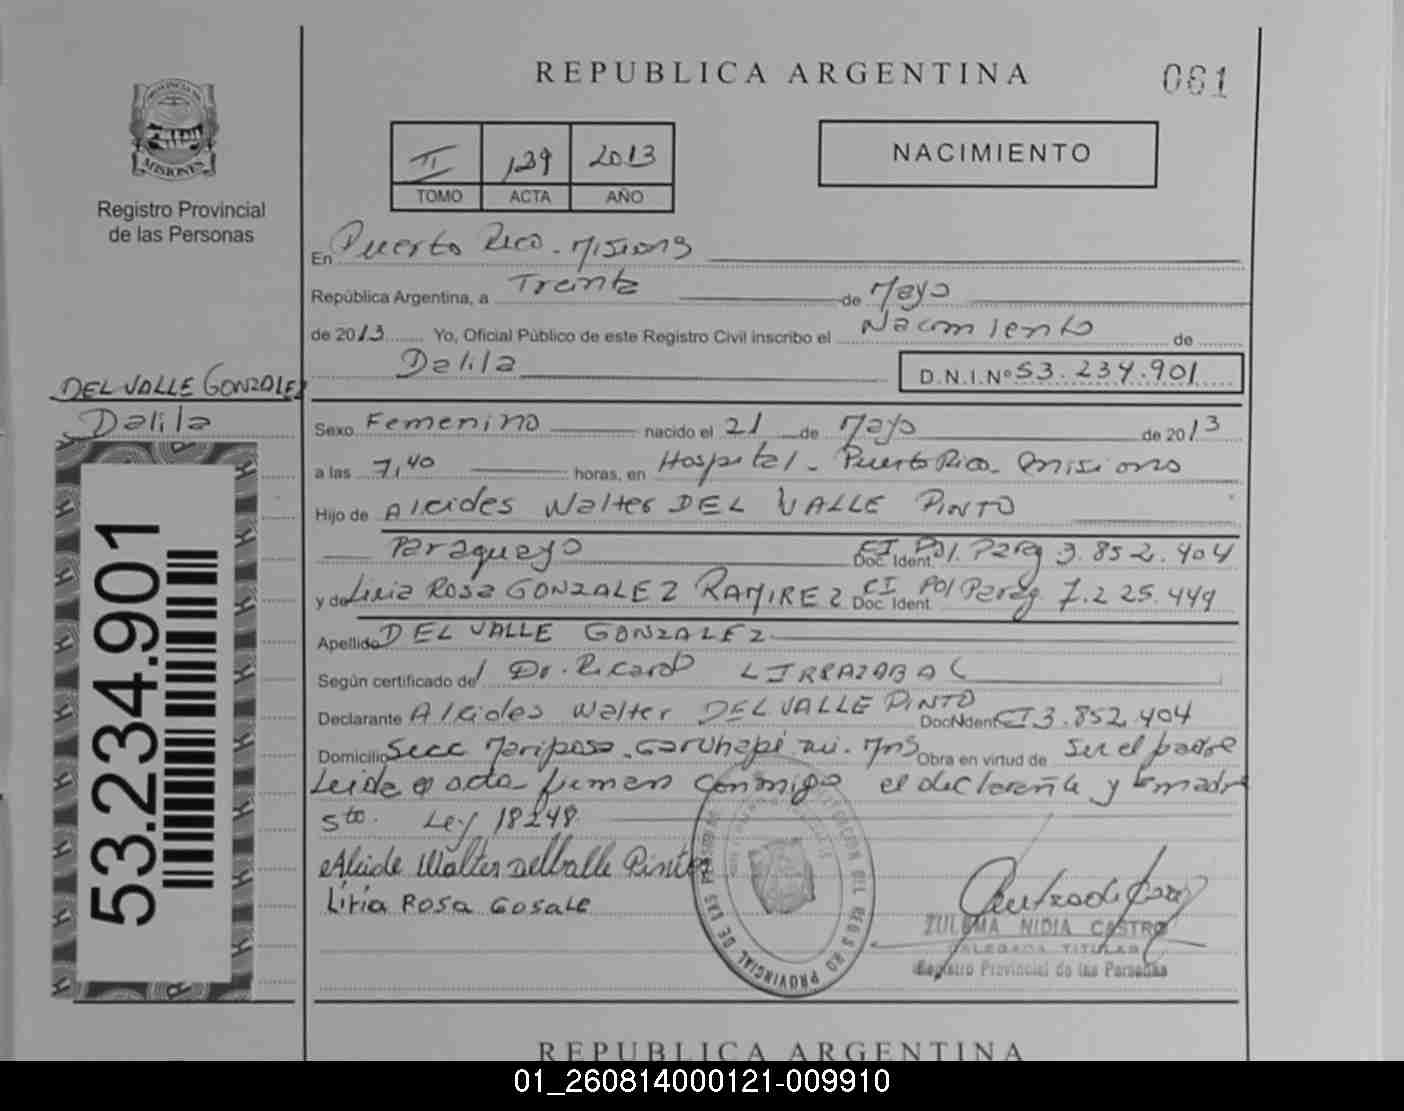 REPUBLICA ARGENTINA
061
PROVINCIA DE
MISIONES
Registro Provincial
de las Personas
II 139 2013
TOMO ACTA AÑO
NACIMIENTO
En Puerto Rico - Misions
República Argentina, a Treinta de Mayo
de 2013 Yo, Oficial Público de este Registro Civil inscribo el Nacimiento de
Dalila D.N.I.Nº 53.234.901
DEL VALLE GONZALEZ
Dalila
53.234.901
Sexo Femenino nacido el 21 de Mayo de 2013
a las 7,40 horas, en Hospital - Puerto Rico - Misions
Hijo de Alcides Walter DEL VALLE PINTO
Paraguayo Doc. Ident. CI Pol. Parag 3.852.404
y de Liria Rosa GONZALEZ RAMIREZ Doc. Ident CI Pol Parag 7.225.449
Apellido DEL VALLE GONZALEZ
Según certificado de/ Dr. Ricardo LIRRAZABAL
Declarante Alcides Walter DEL VALLE PINTO Doc Ident CI 3.852.404
Domicilio Secc Mariposa - Garuhapé mi. Mns Obra en virtud de ser el padre
Leida el acta firman conmigo el declarante y la madre
sto. Ley 18248
Alcide Walter Delballe Pinto
Liria Rosa Gosale
ZULEMA NIDIA CASTRO
DELEGADA TITULAR
Registro Provincial de las Personas
REGISTRO PROVINCIAL DE LAS PERSONAS
REPUBLICA ARGENTINA
01_260814000121-009910